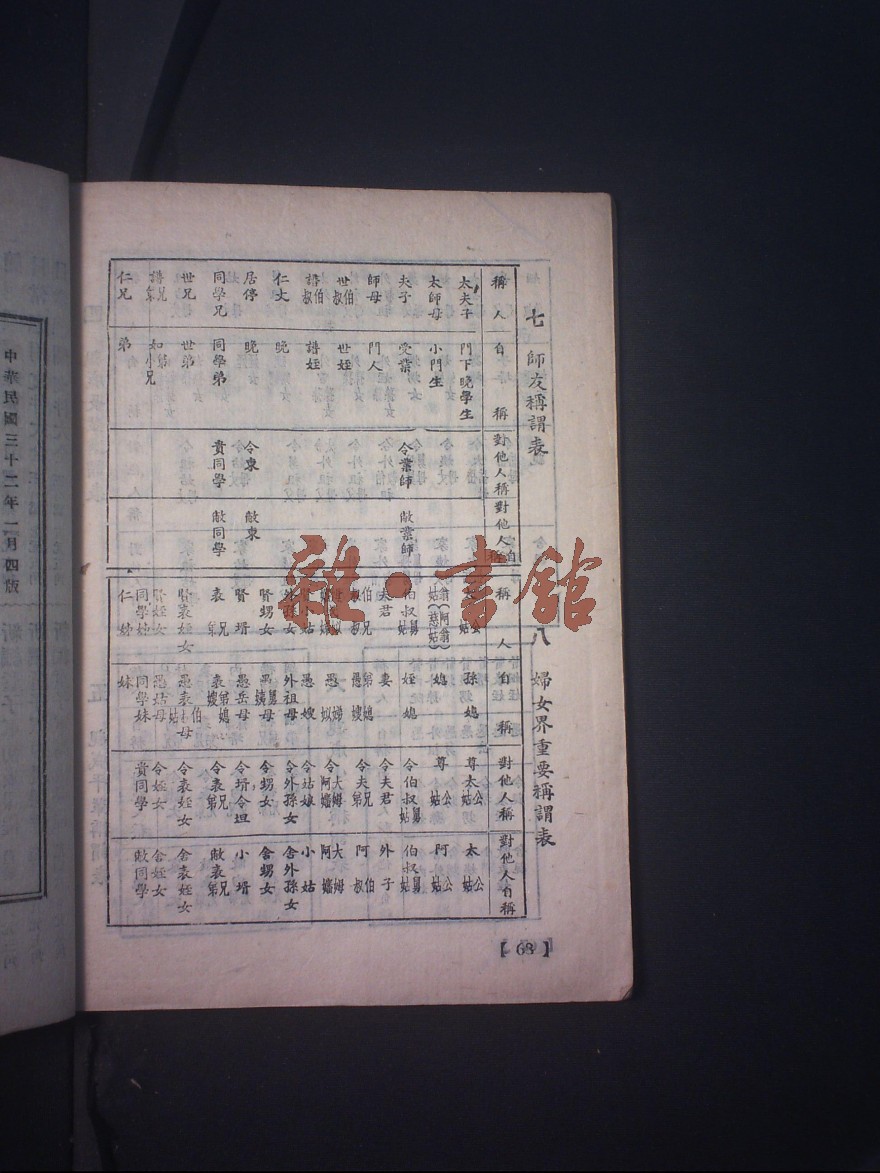 七 師友稱謂表
稱人 自稱 對他人稱 對他人自稱
太夫子 門下晚學生
太師母 小門生
夫子 受業 令業師 敝業師
師母 門人
世伯叔 世姪
譜伯叔 譜姪
仁丈 晚
居停 晚 令東 敝東
同學兄 同學弟 貴同學 敝同學
世兄 世弟
譜兄弟 如弟小兄
仁兄 弟
八 婦女界重要稱謂表
稱人 自稱 對他人稱 對他人自稱
太公姑 孫媳 尊太公姑 太公姑
媳 尊公姑 阿公姑
伯叔舅姑 姪媳 令伯叔舅姑 伯叔舅姑
夫君 妻 令夫君 外子
伯兄叔 愚弟媳嫂 令夫兄弟 阿伯叔
愚娣姒 令大姆阿嬸 大姆阿嬸
賢小姑 愚嫂 令姑娘 小姑
外孫女 外祖母 令外孫女 舍外孫女
賢甥女 愚舅母姨母 令甥女 舍甥女
賢壻 愚岳母 令壻令坦 小壻
表兄弟 表弟媳嫂 令表兄弟 敝表兄弟
賢表姪女 愚表伯母姑 令表姪女 舍表姪女
賢姪女 愚姑母 令姪女 舍姪女
同學姊 同學妹 貴同學 敝同學
仁姊 妹
【68】
中華民國三十二年一月四版
雜·書館